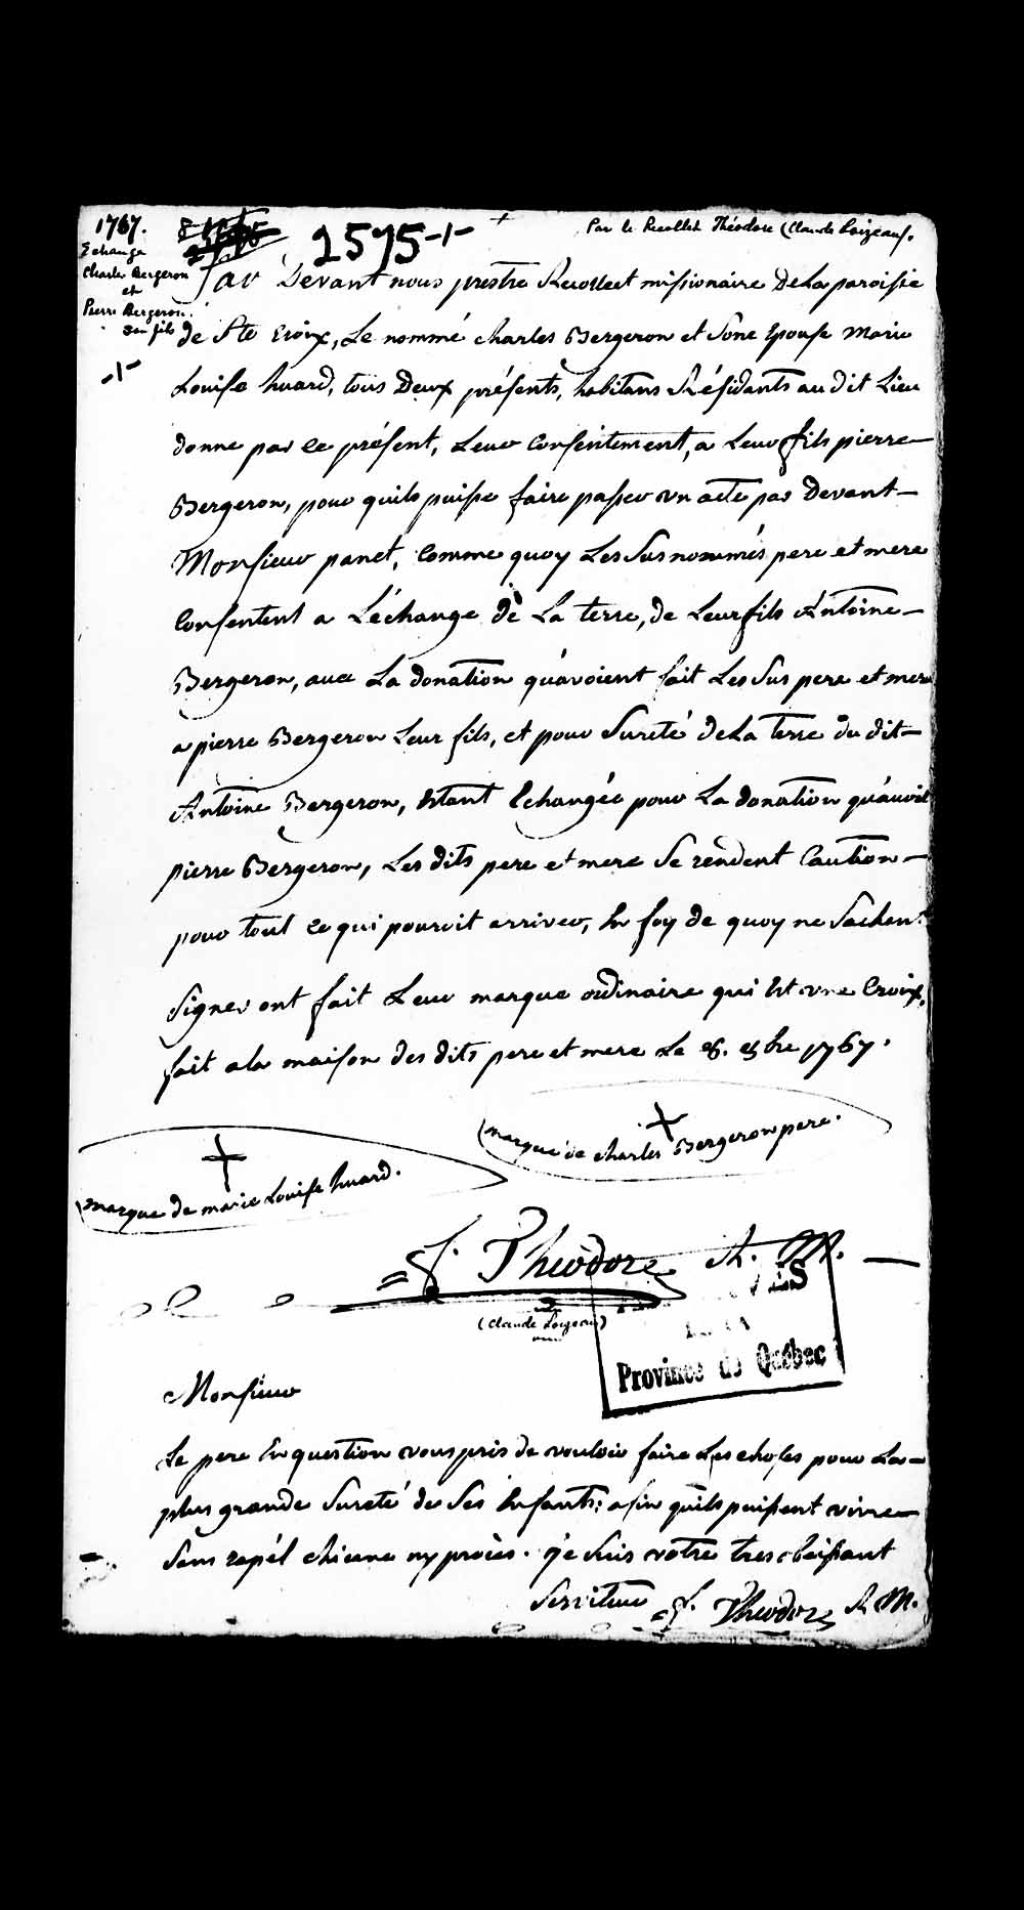 1767.
2575
Par le Recollet Théodore (Claude Loizeau).
Echange
Charles Bergeron
et
Pierre Bergeron.
son fils
Par Devant nous prestre Recollect missionaire De La paroisse
de Ste Croix, Le nommé charles Bergeron et Sone Epouse Marie
Louise huard, tous Deux présents, habitans Résidants au dit Lieu
donne par ce présent, Leur Consentement, a Leur fils pierre
Bergeron, pour quils puisse faire passer un acte par Devant
Monsieur panet, Comme quoy Les Sus nommés pere et mere
Consentent a L'échange de La terre, de Leur fils Antoine
Bergeron, avec La donation qu'avoient fait Les Sus pere et mere
a pierre Bergeron Leur fils, et pour Sureté de La Terre du dit
Antoine Bergeron, Etant Echangée pour La donation qu'avoit
pierre Bergeron, Les dits pere et mere Se rendent Caution
pour tout ce qui pouroit arriver, En foy de quoy ne Sachent
Signer ont fait Leur marque ordinaire qui Est une Croix,
fait a la maison des dits pere et mere Le 1767.
marque de charles Bergeron pere.
marque de marie Louise huard.
f. Theodore R. M.
(Claude Loizeau)
Province de Québec
Monsieur
Le pere En question vous pris de vouloir faire Les choses pour La
plus grande Sureté de Ses Enfants; afin qu'ils puissent vivre
Sans rapél chicane ny procès. Je Suis votre tres obeissant
Serviteur f. Theodore R M.